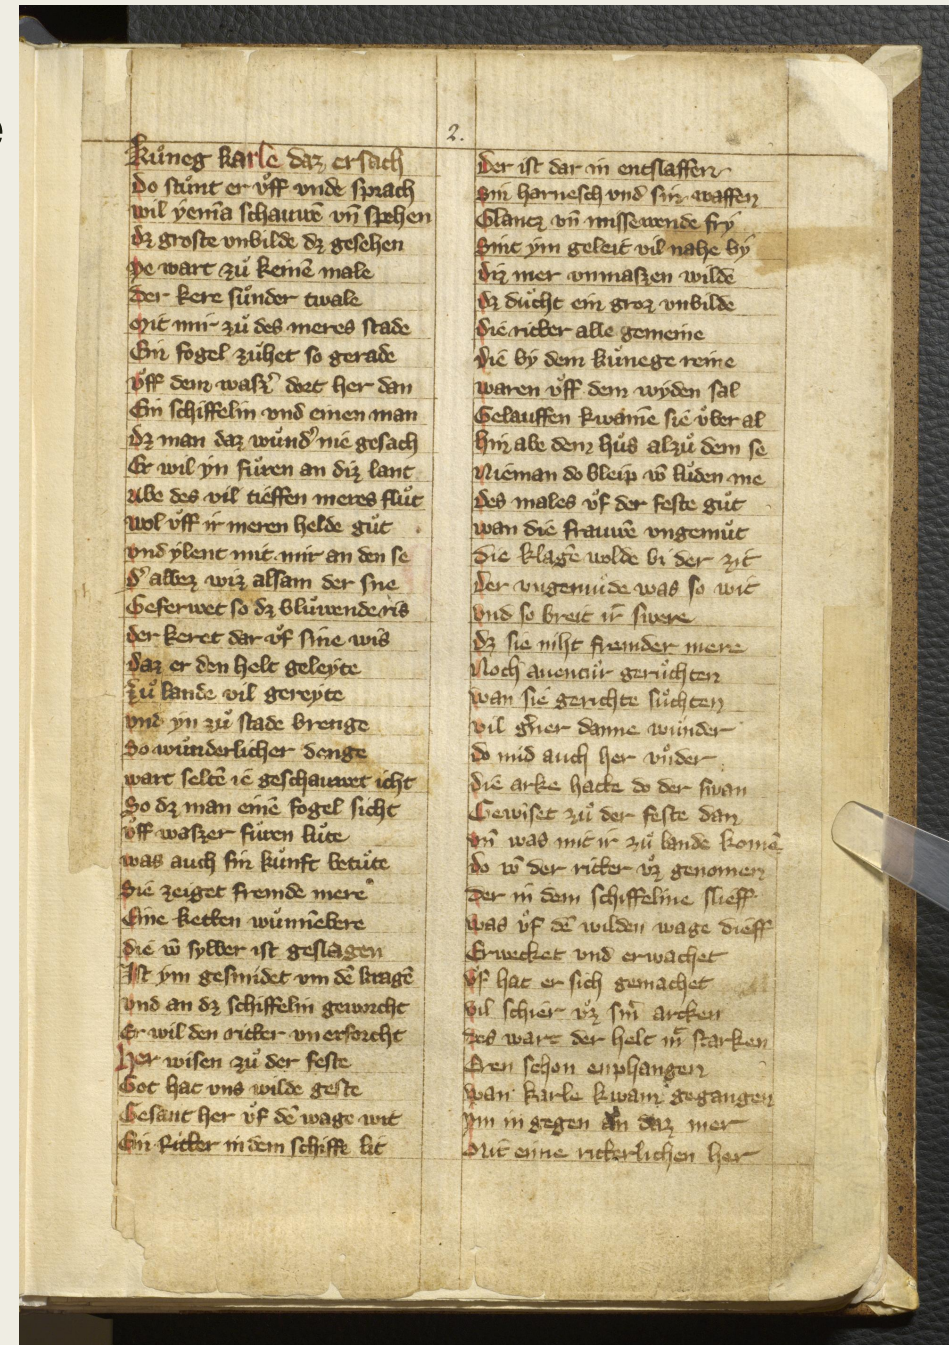 2.
kůneg karle daz ersach
Do stůnt er vff vnde sprach
wil yemā schauwē vn̄ spehen
dz groste vnbilde dz gesehen
ye wart zů keinē male
Der kere sůnder twale
mit mir zů des meres stade
Ein fogel zůhet so gerade
vff dem wasz' dort her dan
Ein schiffelin vnd einen man
dz man daz wůnd' nie gesach
Er wil yn fůren an diz lant
Abe des vil tieffen meres flůt
wol vff ir meren helde gůt
vnd ylent mit mir an den se
d' albez wiz alsam der sne
Geferwet so dz blůwende ris
der keret dar vf sine wis
daz er den helt geleyte
zů lande vil gereyte
vnd yn zů stade brenge
So wůnderlicher denge
wart seltē ie geschauwet icht
So dz man einē fogel sicht
vff waszer fůren lůte
was auch sin kůnft betůte
Die zeiget fremde mere
Eine ketten wůnnēbere
die vō sylber ist geslagen
Ist ym gesmidet vm dē kragē
vnd an dz schiffelin geworcht
Er wil den ritter vnerforcht
her wisen zů der feste
Got hat vns wilde geste
Gesant her vf dē wage wit
Ein Ritter in dem schiffe lit
Der ist dar in entslaffen
Sin harnesch vnd sin waffen
Glancz vn̄ missewende fry
Sint ym geleit vil nahe by
diz mer vnmaszen wilde
dz důcht ein groz vnbilde
die ritter alle gemeine
die by dem kůnege reine
waren vff dem wyden sal
Gelauffen kwamē sie vber al
hin abe dem hůs alzů dem se
Nieman do bleip vō lůden me
des males vf der feste gůt
wan die frauwē vngemůt
Die klagē wolde bi der zit
der vngemůde was so wit
vnd so breit ir swere
dz sie niht fremder mere
Noch auentůr gerůchten
wan sie gerichte sůchten
vil g'ner danne wůnder
do mid auch her vnder
die arke hatte do der swan
Gewiset zů der feste dan
vn̄ was mit ir zů lande komē
do vō der ritter vz genomen
der in dem schiffeline slieff
was vf dē wilden wage dieff
Erwecket vnd erwachet
vf hat er sich gemachet
vil schier vz sin' arcken
des wart der helt mit starken
Eren schon enphangen
wan karle kwam gegangen
ym in gegen an daz mer
Mit eime ritterlichen her